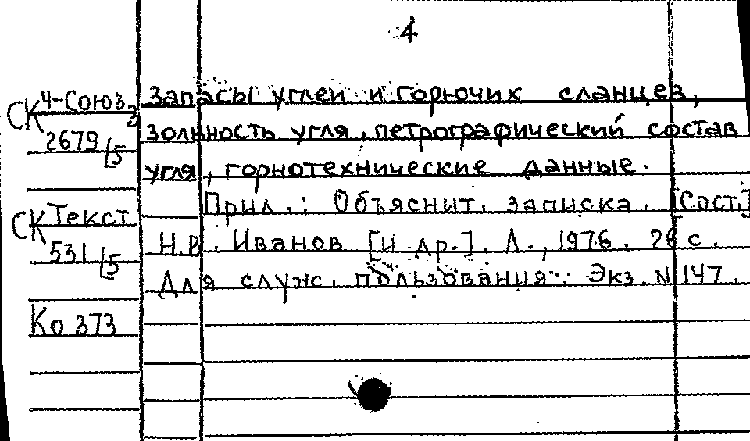 4
СК 4-Союз 3
2679/5
запасы углей и горючих сланцев,
зольность угля, петрографический состав
угля, горнотехнические данные.
СК Текст
531/5
Прил.: Объяснит. записка. [Сост.]
Н.В. Иванов [и др.]. Л., 1976. 26 с.
Для служ. пользования. Экз. N 147.
Ко 373